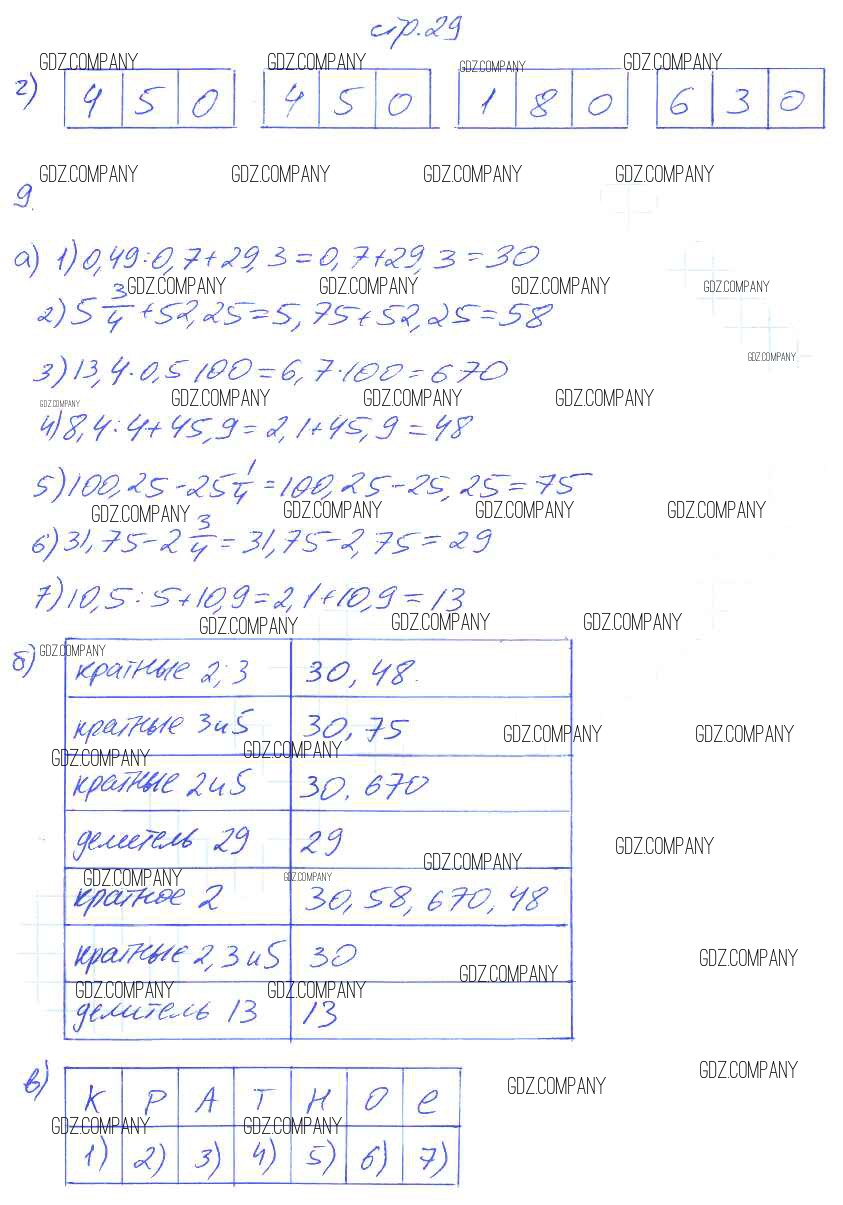 стр. 29
GDZ.COMPANY GDZ.COMPANY GDZ.COMPANY GDZ.COMPANY
г) 4 5 0 4 5 0 1 8 0 6 3 0
GDZ.COMPANY GDZ.COMPANY GDZ.COMPANY GDZ.COMPANY
9.
а) 1) 0,49:0,7+29,3=0,7+29,3=30
GDZ.COMPANY GDZ.COMPANY GDZ.COMPANY GDZ.COMPANY
2) 5 3/4 +52,25=5,75+52,25=58
GDZ.COMPANY
3) 13,4·0,5 100=6,7·100=670
GDZ.COMPANY GDZ.COMPANY GDZ.COMPANY GDZ.COMPANY
4) 8,4:4+45,9=2,1+45,9=48
5) 100,25-25 1/4=100,25-25,25=75
GDZ.COMPANY GDZ.COMPANY GDZ.COMPANY GDZ.COMPANY
6) 31,75-2 3/4=31,75-2,75=29
7) 10,5:5+10,9=2,1+10,9=13
GDZ.COMPANY GDZ.COMPANY GDZ.COMPANY
GDZ.COMPANY
б) кратные 2;3 30, 48.
кратные 3и5 30, 75
GDZ.COMPANY GDZ.COMPANY GDZ.COMPANY GDZ.COMPANY
кратные 2и5 30, 670
делитель 29 29
GDZ.COMPANY GDZ.COMPANY
GDZ.COMPANY GDZ.COMPANY
кратное 2 30, 58, 670, 48
кратные 2,3и5 30
GDZ.COMPANY GDZ.COMPANY
GDZ.COMPANY GDZ.COMPANY
делитель 13 13
GDZ.COMPANY GDZ.COMPANY
в) К Р А Т Н О е
GDZ.COMPANY GDZ.COMPANY
1) 2) 3) 4) 5) 6) 7)